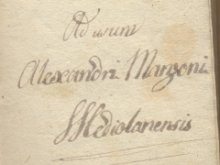 Ad usum
Alexandri Manzoni
Mediolanensis